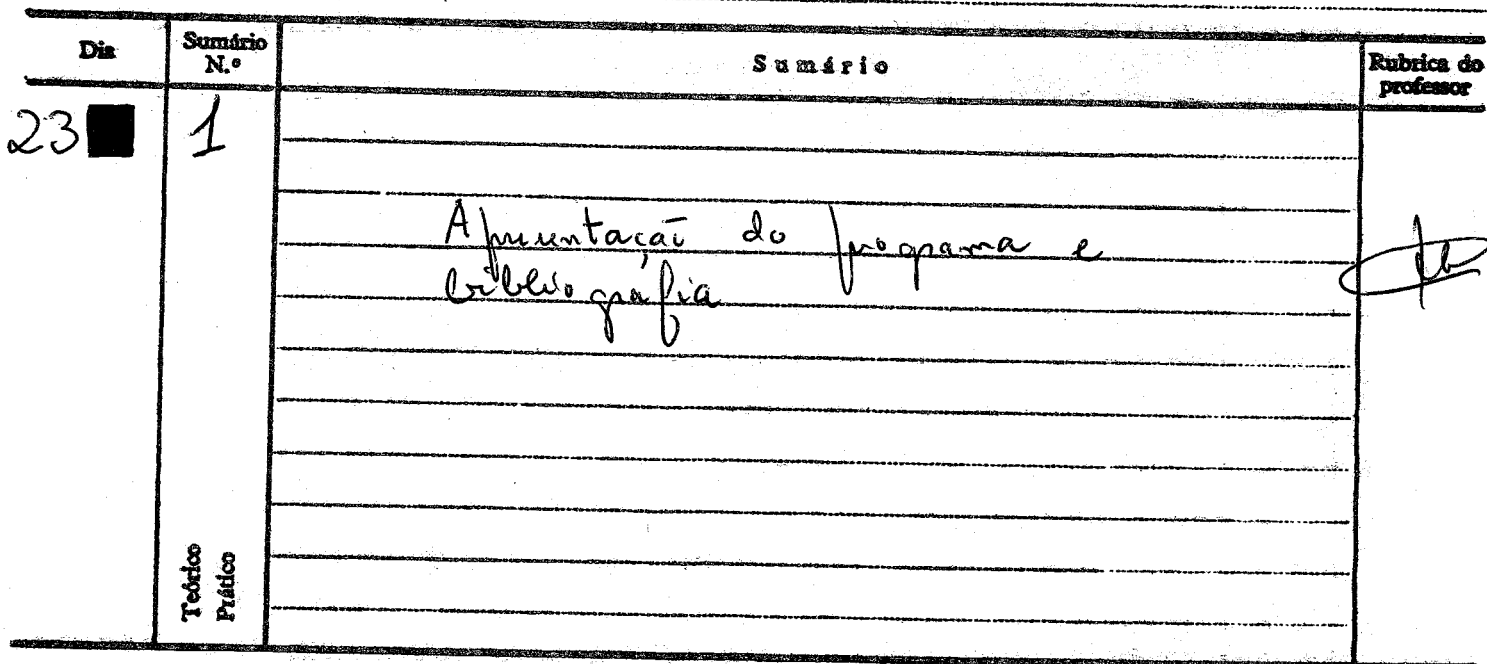 Dia
Sumário
N.º
Sumário
Rubrica do
professor
23
1
Apresentação do programa e
bibliografia
Teórico
Prático